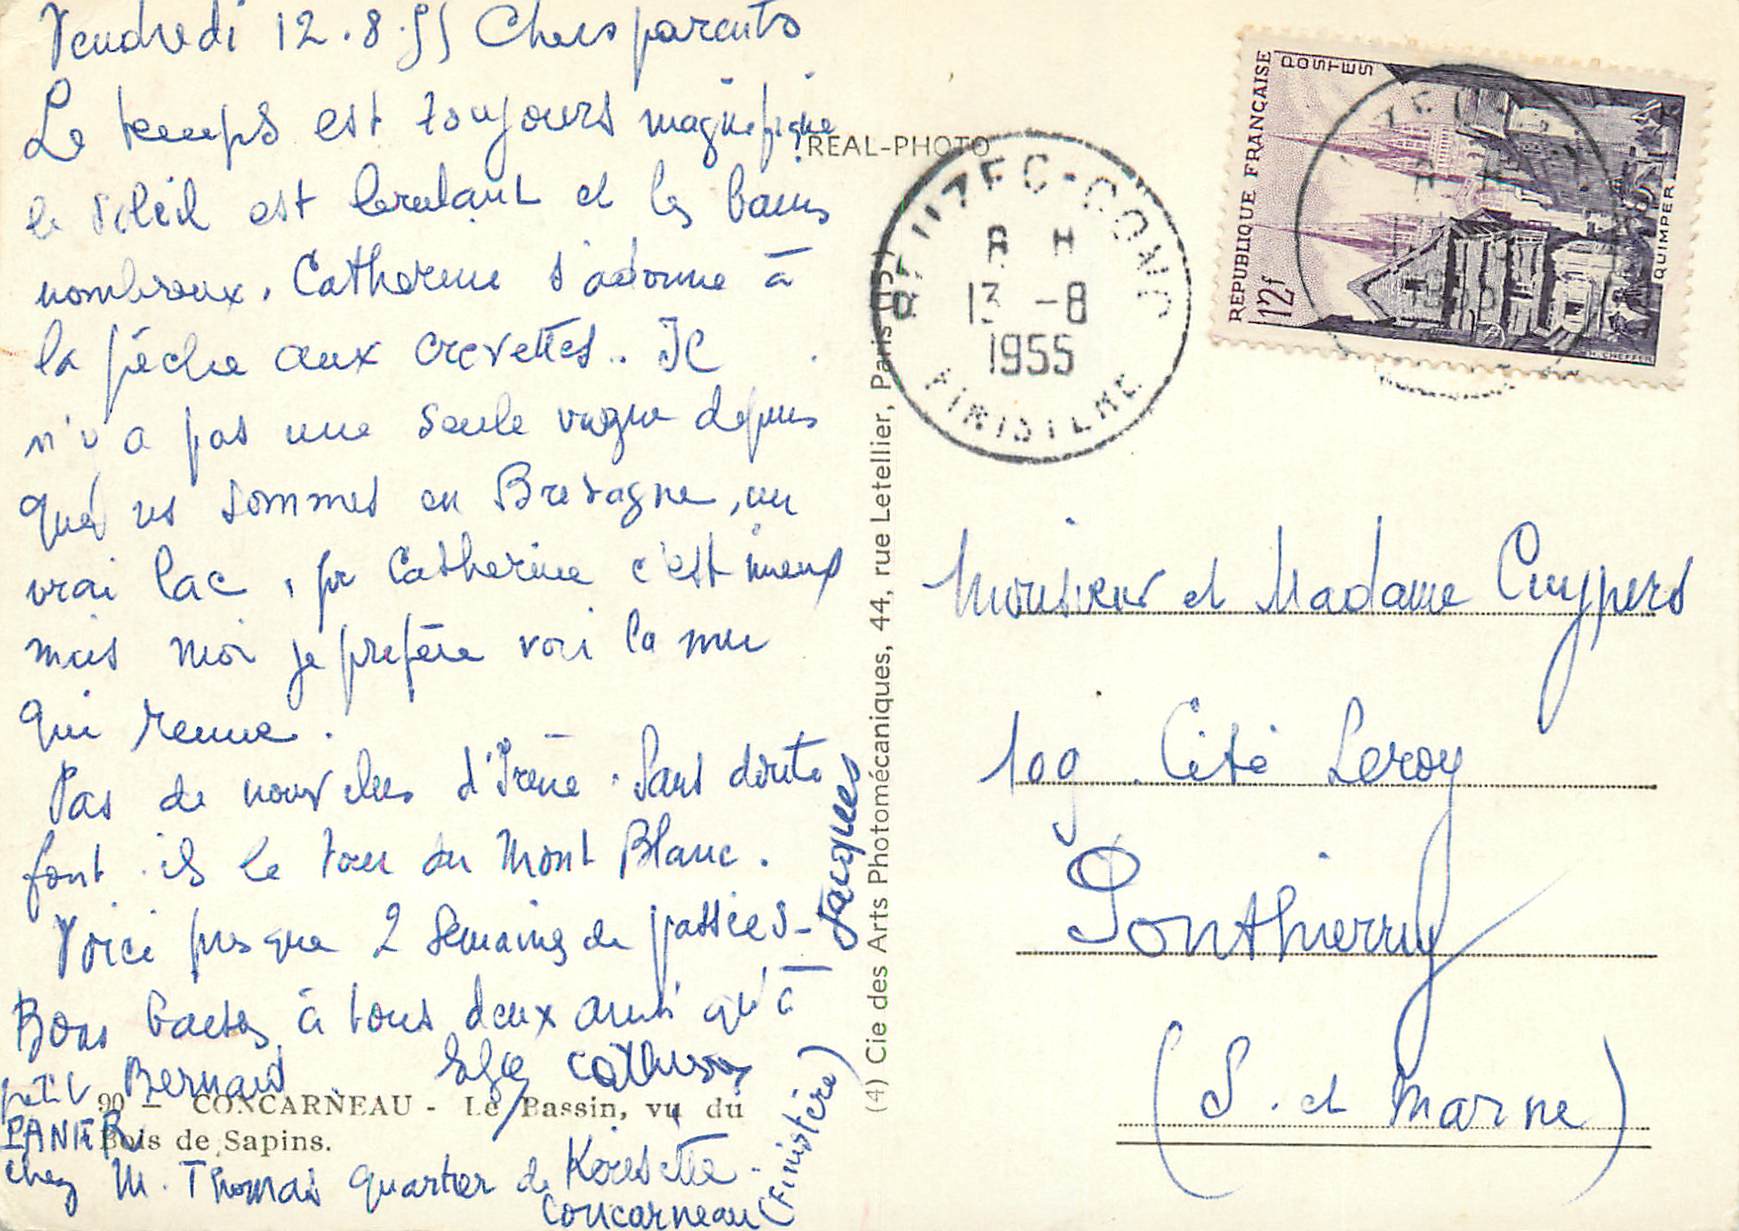 Vendredi 12.8.55 Chers parents
Le temps est toujours magnifique
le soleil est brulant et les bains
nombreux. Catherine s'adonne à
la pêche aux crevettes.. Il
n'y a pas une seule vague depuis
que ns sommes en Bretagne, un
vrai lac, pr Catherine c'est mieux
mais moi je préfère voir la mer
qui remue.
Pas de nouvelles d'Irène. Sans doute
font-ils le tour du Mont Blanc.
Voici presque 2 semaines de passées-
Bons baisers à tous deux ainsi qu'à
petit Bernard
Catherine
Jacques
PANIER
chez M. Thomas quartier de
Concarneau (Finistère)
90 — CONCARNEAU - Le Bassin, vu du
Bois de Sapins.
REAL-PHOTO
(4) Cie des Arts Photomécaniques, 44, rue Letellier, Paris (15e)
BEUZEC-CONQ
8 H
13 -8
1955
FINISTERE
REPUBLIQUE FRANÇAISE
POSTES
12f
QUIMPER
H. CHEFFER
Monsieur et Madame Cuypers
109 Cité Leroy
Ponthierry
(S. et Marne)